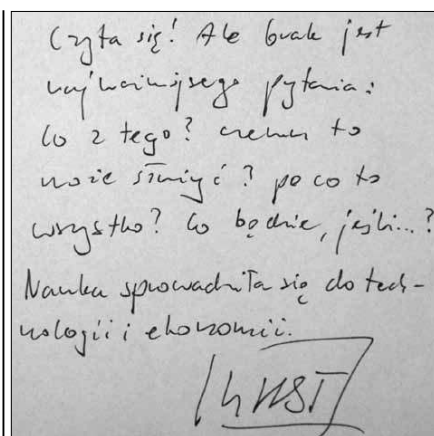 Czyta się! Ale brak jest
najważniejszego pytania:
co z tego? czemu to
może służyć? po co to
wszystko? Co będzie, jeśli...?
Nauka sprowadziła się do tech-
nologii i ekonomii.